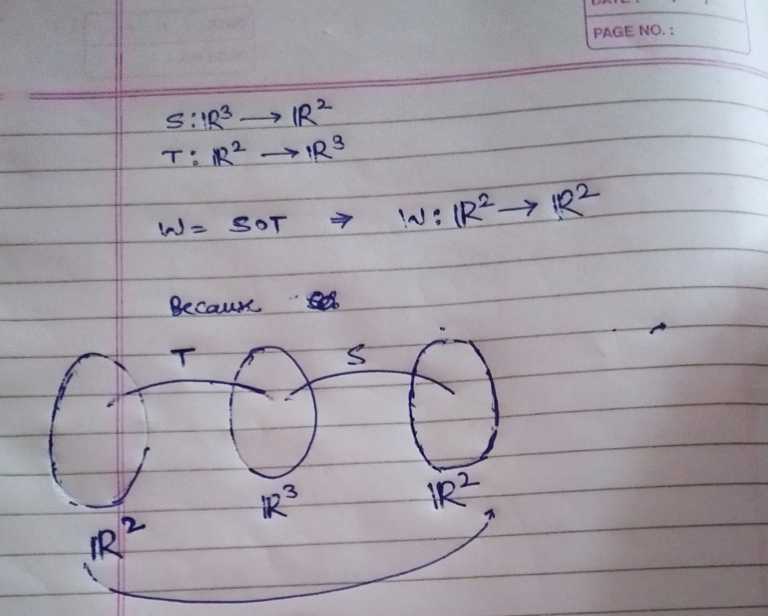 DATE :
PAGE NO. :
S : ℝ³ → ℝ²
T : ℝ² → ℝ³
W = SOT ⇒ W : ℝ² → ℝ²
Because
T S
ℝ² ℝ³ ℝ²